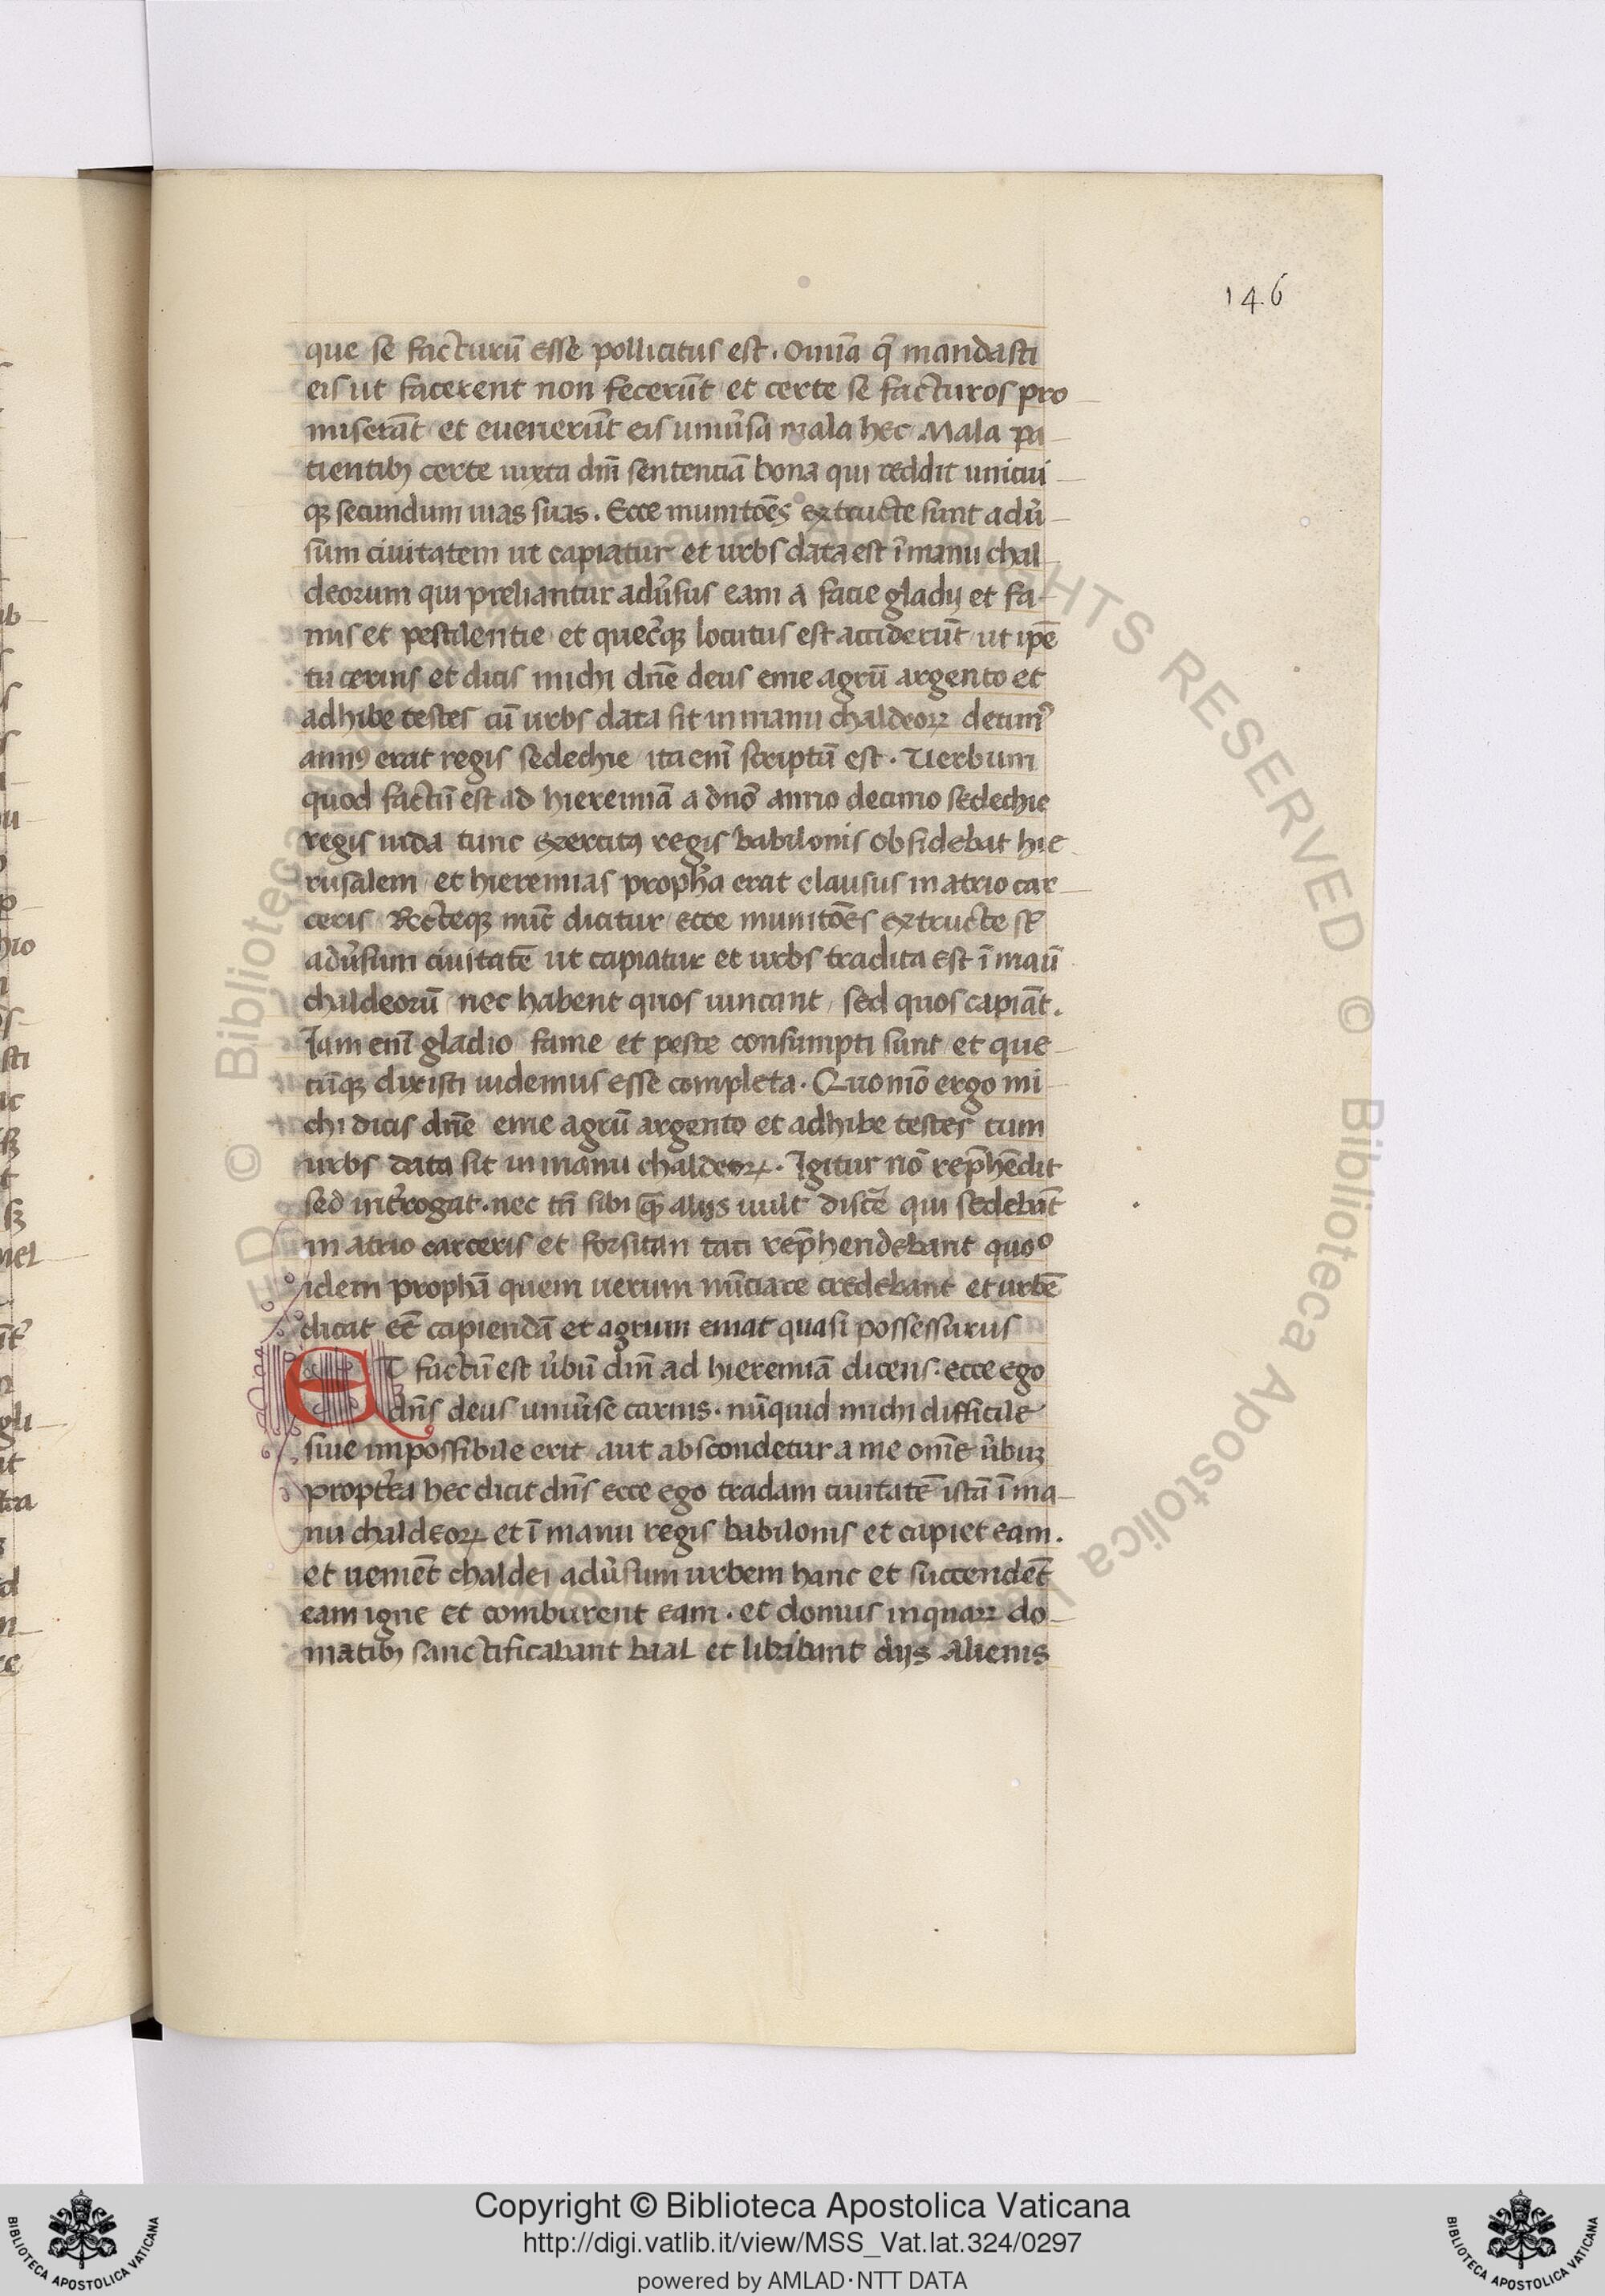 146
que se facturū esse pollicitus est. Om̄ia q̄ mandasti
eis ut facerent non fecerūt et certe se facturos pro
miserāt et euenerūt eis uniuʼsa mala hec Mala pa
tientibꝫ certe iuxta dnī sententiā bona qui reddit unicui
qꝫ secundum uias suas. Ecce munitōēs extructe sunt aduʼ
sum ciuitatem ut capiatur et urbs data est ī manu chal
deorum qui preliantur aduʼsus eam a facie gladij et fa
mis et pestilentie et quecʼqꝫ locutus est acciderūt ut ipē
tu cernis et dicis michi dn̄e deus eme agrū argento et
adhibe testes cū urbs data sit in manu chaldeoꝝ decimʼ
annꝰ erat regis sedechie ita enī scriptū est. Uerbum
quod factū est ad hieremiā a dn̄o anno decimo sedechie
regis iuda tunc exercitꝰ regis babilonis obsidebat hie
rusalem et hieremias prophʼa erat clausus in atrio car
ceris Recteqꝫ nūc dicitur ecce munitōēs extructe st̄
aduʼsum ciuitatē ut capiatur et urbs tradita est ī maū
chaldeorū nec habent quos uincant sed quos capiāt.
Iam enī gladio fame et peste consumpti sunt et que
cūqꝫ dixisti uidemus esse completa. Quomō ergo mi
chi dicis dn̄e eme agrū argento et adhibe testes cum
urbs data sit in manu chaldeoꝝ. Igitur nō rep̄hēdit
sed intʼrogat. nec tn̄ sibi q̄ȝ alijs uult discʼe qui sedebāt
in atrio carceris et forsitan taciti rep̄hendebant quoº
idem prophā quem uerum nūciare credebant et urbē
dicat eē capiendā et agrum emat quasi possessurus
ET factū est uʼbū dnī ad hieremiā dicens. ecce ego
dn̄s deus uniuʼse carnis. nūquid michi difficile
siue impossibile erit aut abscondetur a me om̄e uʼbuꝫ
proptʼea hec dicit dn̄s ecce ego tradam ciuitatē istā ī ma
nu chaldeoꝝ et ī manu regis babilonis et capiet eam.
et ueniēt chaldei aduʼsum urbem hanc et succendēt
eam igne et comburent eam. et domus in quaꝝ do
matibꝫ sanctificabant baal et libabant dijs alienis
© Biblioteca Apostolica Vaticana ALL RIGHTS RESERVED
© Biblioteca Apostolica Vaticana ALL RIGHTS RESERVED
BIBLIOTECA APOSTOLICA VATICANA
Copyright © Biblioteca Apostolica Vaticana
http://digi.vatlib.it/view/MSS_Vat.lat.324/0297
powered by AMLAD·NTT DATA
BIBLIOTECA APOSTOLICA VATICANA